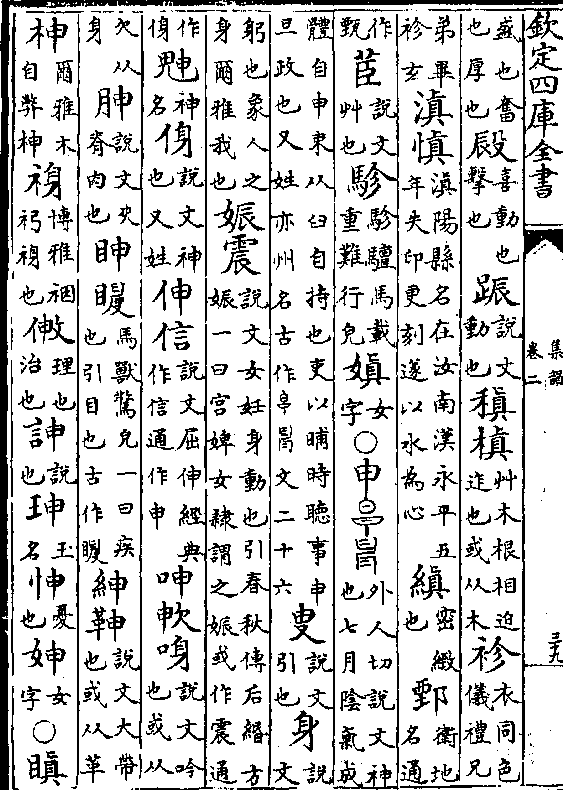 欽定四庫全書
集韻
卷二
三九
盛也奮也厚也㲀喜動也擊也䟴說文動也稹槙艸木根相迫迮也或从木袗衣同色儀禮兄
弟畢袗玄滇慎滇陽縣名在汝南漢永平五年失印更刻遂以水為心縝密緻也鄄衛地名通
作甄茞說文艸也駗駗驙馬載重難行皃嫃女字○申外人切說文神也七月陰氣成
體自申束从臼自持也吏以晡時聽事申旦政也又姓亦州名古作文二十六㕜說文引也身說文
躬也象人之身爾雅我也娠震說文女妊身動也引春秋傳后緡方娠一曰宮婢女隸謂之娠或作震通
作身䰠神名㑗說文神也又姓伸信說文屈伸經典作信通作申呻㰮說文吟也或从
欠从身胂說文夾脊肉也眒馬獸驚皃一曰疾也引目也古作紳䩠說文大帶也或从革
柛爾雅木自弊柛博雅裀也理也治也訷說也珅玉名㤓憂也妽女字○瞋